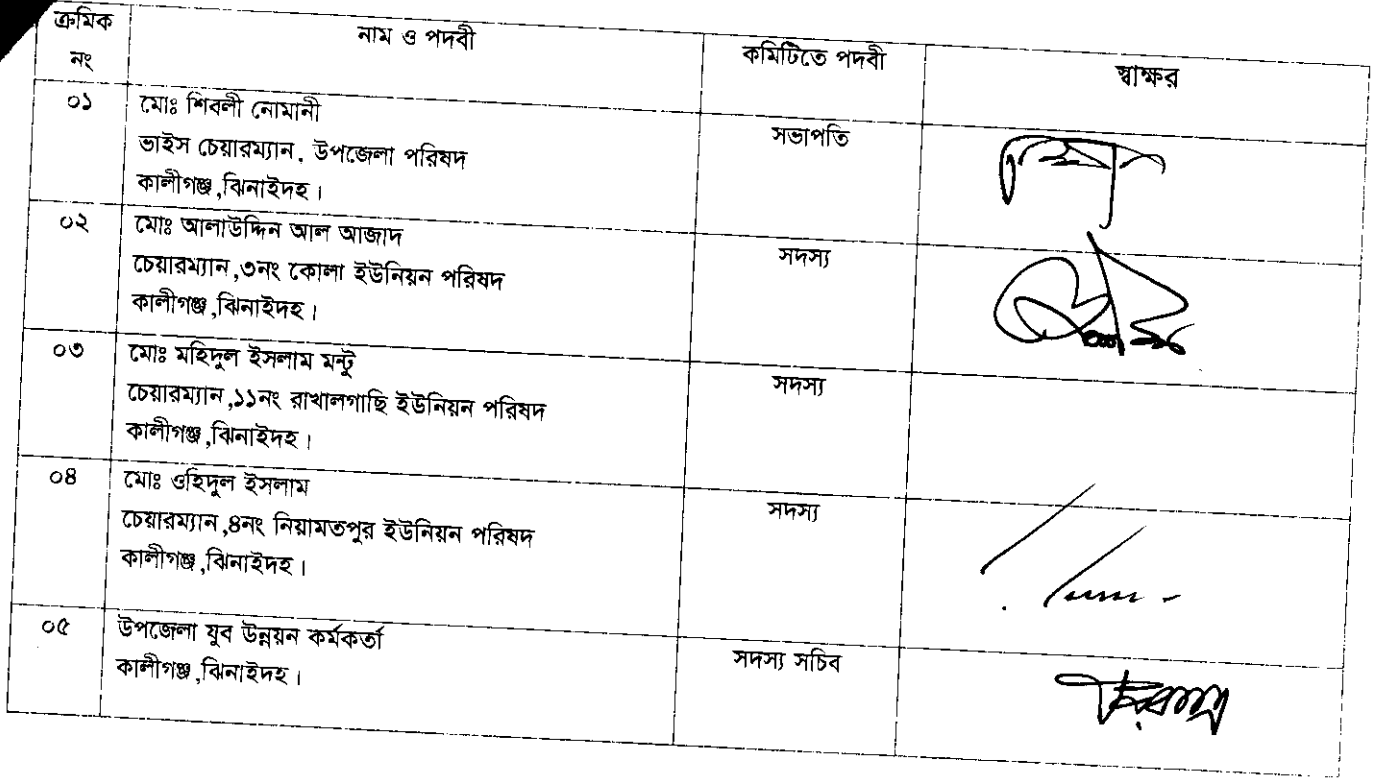 ক্রমিক নং নাম ও পদবী কমিটিতে পদবী স্বাক্ষর
০১ মোঃ শিবলী নোমানী সভাপতি
ভাইস চেয়ারম্যান, উপজেলা পরিষদ
কালীগঞ্জ,ঝিনাইদহ।
০২ মোঃ আলাউদ্দিন আল আজাদ সদস্য
চেয়ারম্যান,৩নং কোলা ইউনিয়ন পরিষদ
কালীগঞ্জ,ঝিনাইদহ।
০৩ মোঃ মহিদুল ইসলাম মন্টু সদস্য
চেয়ারম্যান,১১নং রাখালগাছি ইউনিয়ন পরিষদ
কালীগঞ্জ,ঝিনাইদহ।
০৪ মোঃ ওহিদুল ইসলাম সদস্য
চেয়ারম্যান,৪নং নিয়ামতপুর ইউনিয়ন পরিষদ
কালীগঞ্জ,ঝিনাইদহ।
০৫ উপজেলা যুব উন্নয়ন কর্মকর্তা সদস্য সচিব
কালীগঞ্জ,ঝিনাইদহ।